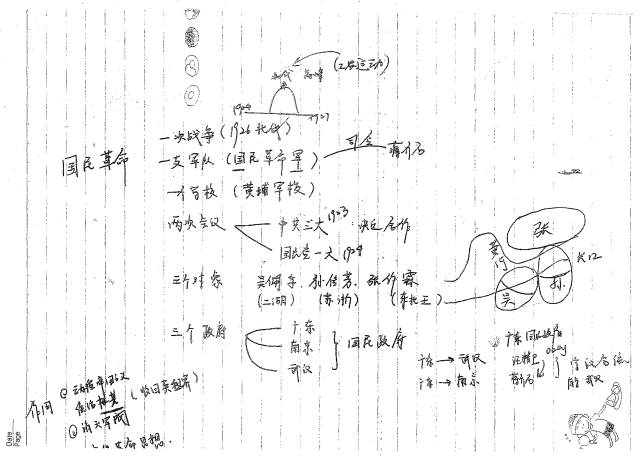 (工农运动)
高峰
1924
1927
国民革命
一次战争(1926北伐)
一支军队(国民革命军) 司令 蒋介石
一个学校(黄埔军校)
两次会议
中共三大1923 决定合作
国民党一大1924
三个对象 吴佩孚 孙传芳 张作霖
(二湖) (苏浙) (东北王)
黄河
张
吴
孙
长江
三个政府
广东
南京
武汉
国民政府
广东国民政府
广东→武汉 汪精卫
广东→南京 蒋介石
宁汉合流
作用
①动摇帝国主义
在华 (收回英租界)
②消灭军阀
革命思想.
Date
Page